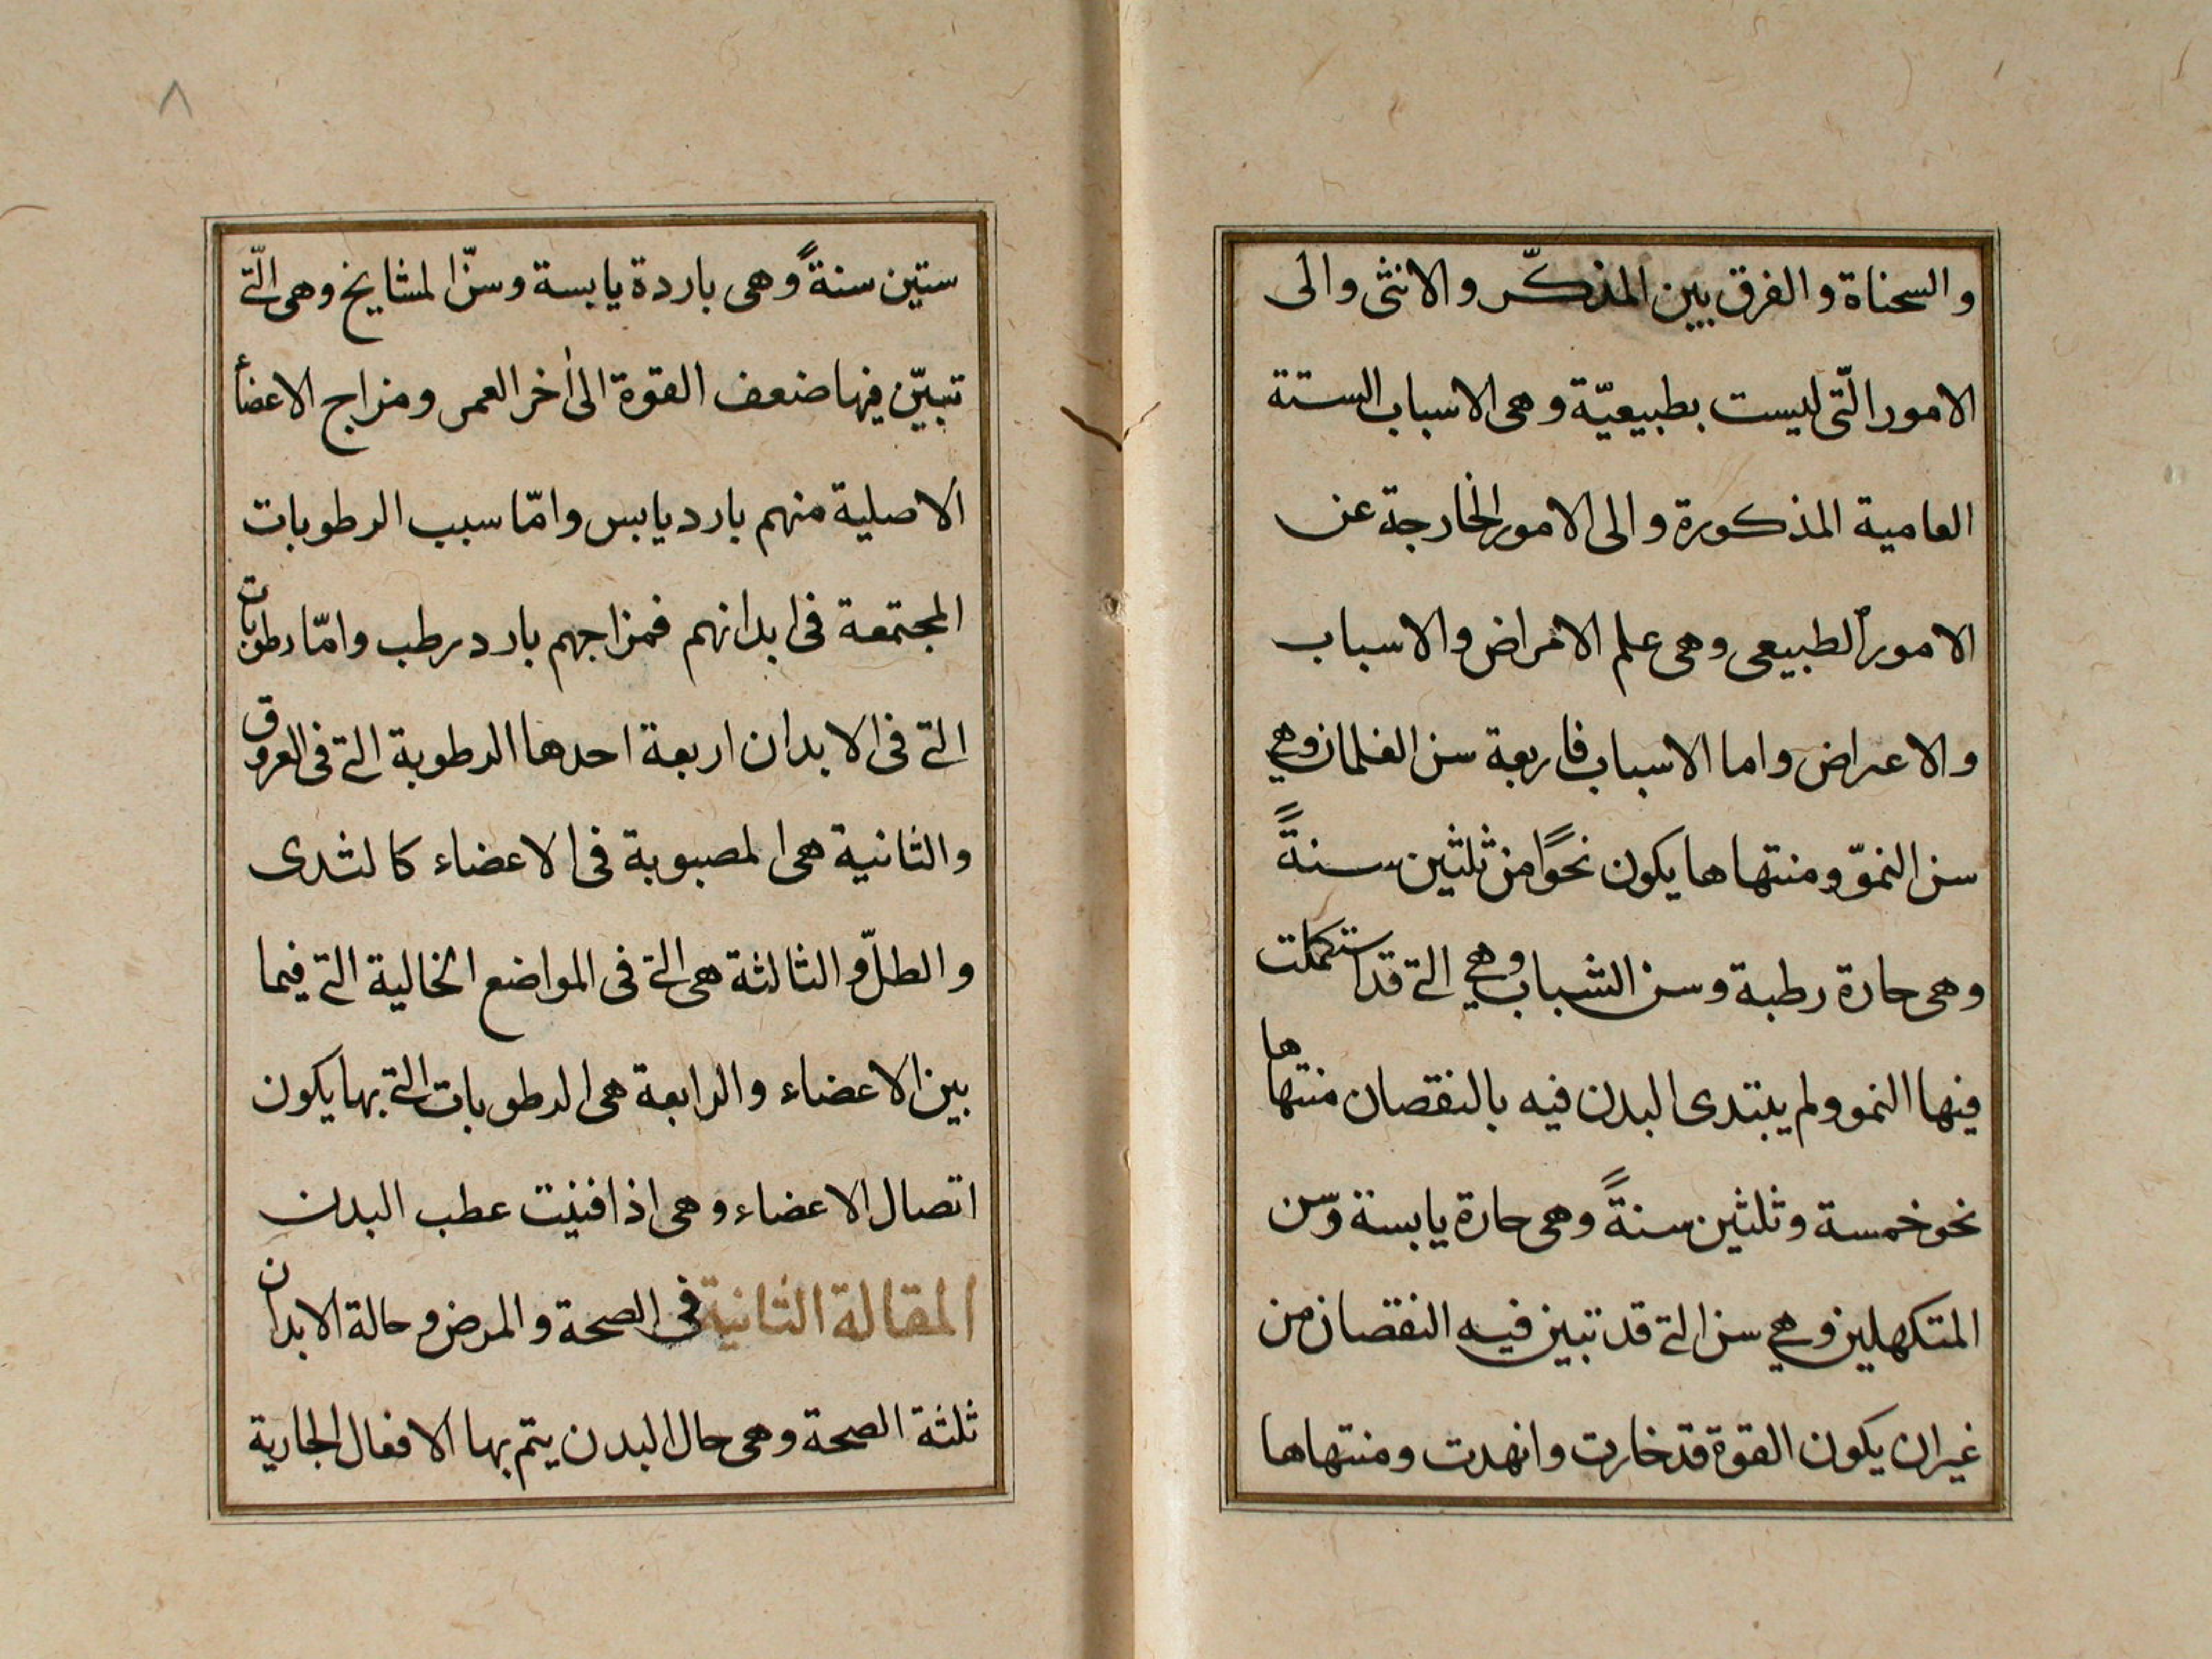 والسحناة والفرق بين المذكّر والانثى والى
الامور الّتى ليست بطبيعيّة وهى الاسباب الستة
العامية المذكورة والى الامور الخارجة عن
الامور الطبيعى وهى علم الامراض والاسباب
والاعراض واما الاسباب فاربعة سن الغلمان وهي
سن النموّ ومنتهاها يكون نحوًا من ثلثين سنةً
وهى حارة رطبة وسن الشباب وهي التے قد استكملت
فيها النمو ولم يبتدى البدن فيه بالنقصان منتهاها
نحو خمسة وثلثين سنةً وهى حارة يابسة وسّن
المتكهلين وهي سن التے قد تبين فيه النقصان من
غير ان يكون القوة قد خارت وانهدت ومنتهاها
٨
ستين سنةً وهى باردة يابسة وسنّ المشايخ وهى الّتے
تبيّن فيها ضعف القوة الى أخر العمر ومزاج الاعضأ
الاصلية منهم بارد يابس وامّا سبب الرطوبات
المجتمعة فى ابدانهم فمزاجهم بارد رطب وامّا رطوبات
التے فى الابدان اربعة احدها الرطوبة التے فى العروق
والثانية هى المصبوبة فى الاعضاء كالثدى
والطلّ والثالثة هى التے فى المواضع الخالية التے فيما
بين الاعضاء والرابعة هى الرطوبات التے بها يكون
اتصال الاعضاء وهى اذا فنيت عطب البدن
المقالة الثانية فى الصحة والمرض وحالة الابدان
ثلثة الصحة وهى حال البدن يتم بها الافعال الجارية